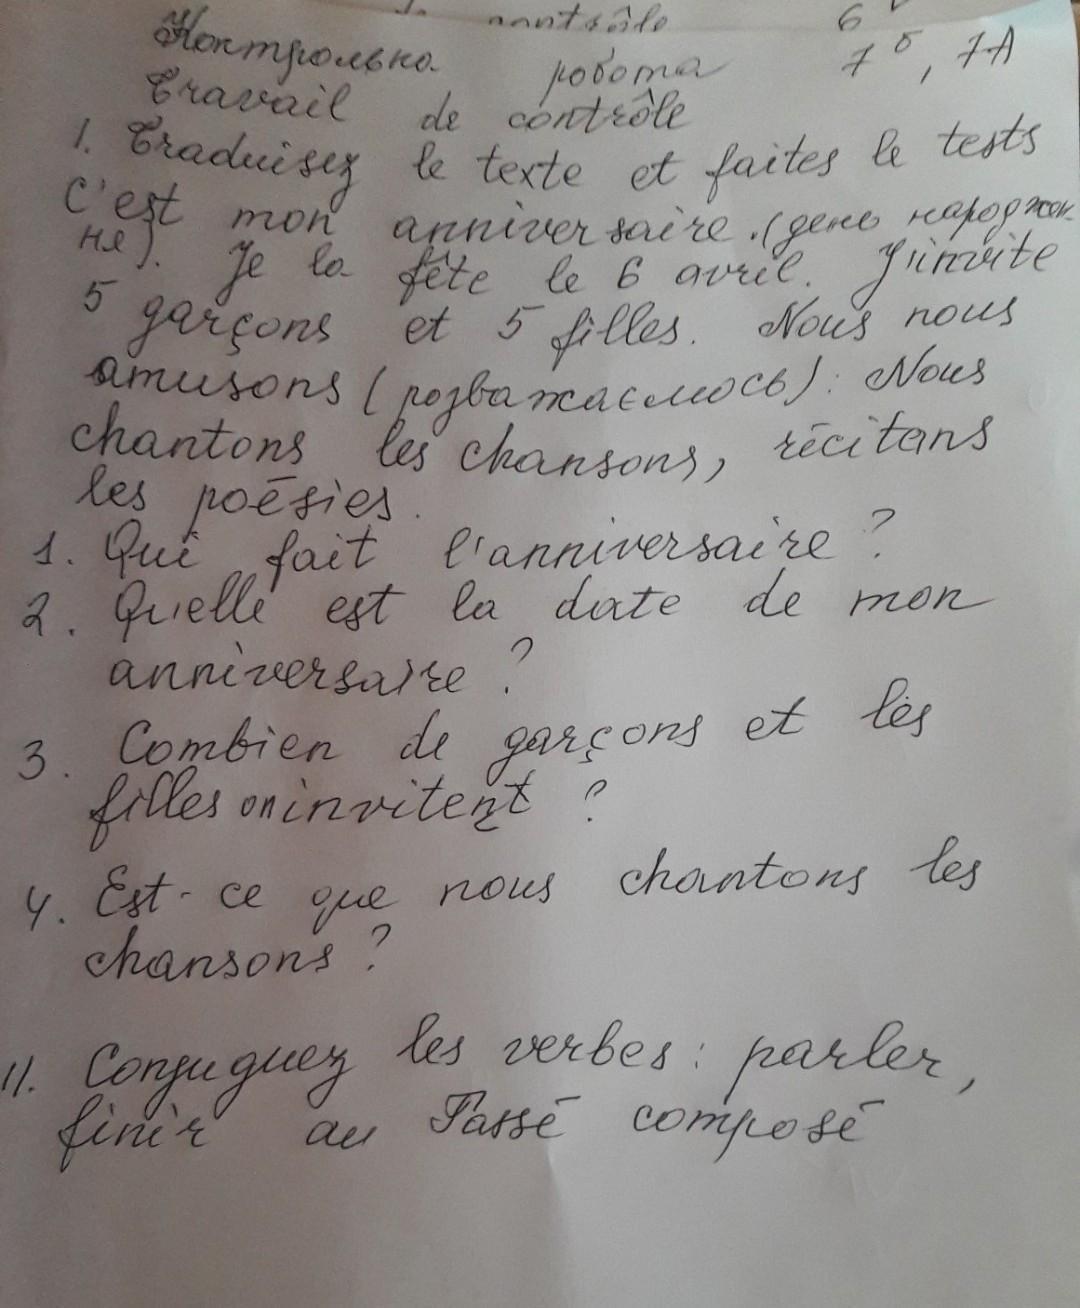 contrôle 6
Контрольна робота 7 Б, 7-А
Travail de contrôle
1. Traduisez le texte et faites le tests
C'est mon anniversaire. (день народжен
ня). Je la fête le 6 avril. J'invite
5 garçons et 5 filles. Nous nous
amusons (розважаємось): Nous
chantons les chansons, récitons
les poésies.
1. Qui fait l'anniversaire?
2. Quelle est la date de mon
anniversaire?
3. Combien de garçons et les
filles on invitent?
4. Est-ce que nous chantons les
chansons?
11. Conjuguez les verbes: parler,
finir au Passé composé